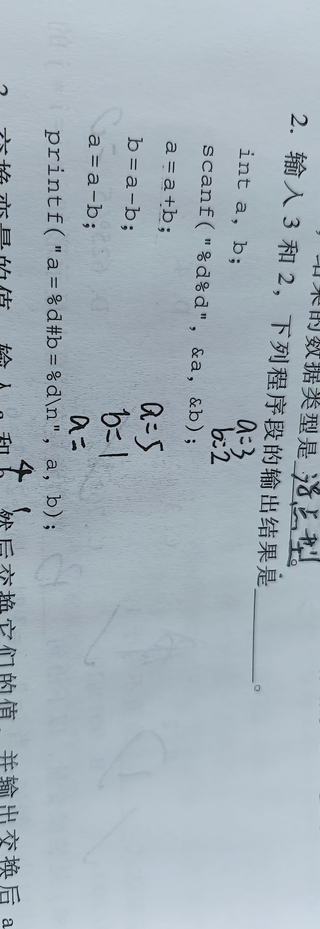 结果的数据类型是 浮点型。
2. 输入3和2，下列程序段的输出结果是________。
int a, b; a=3
b=2
scanf("%d%d", &a, &b);
a=a+b; a=5
b=a-b; b=1
a=a-b; a=
printf("a=%d#b=%d\n", a, b);
交换变量的值，输入a和b，然后交换它们的值，并输出交换后a